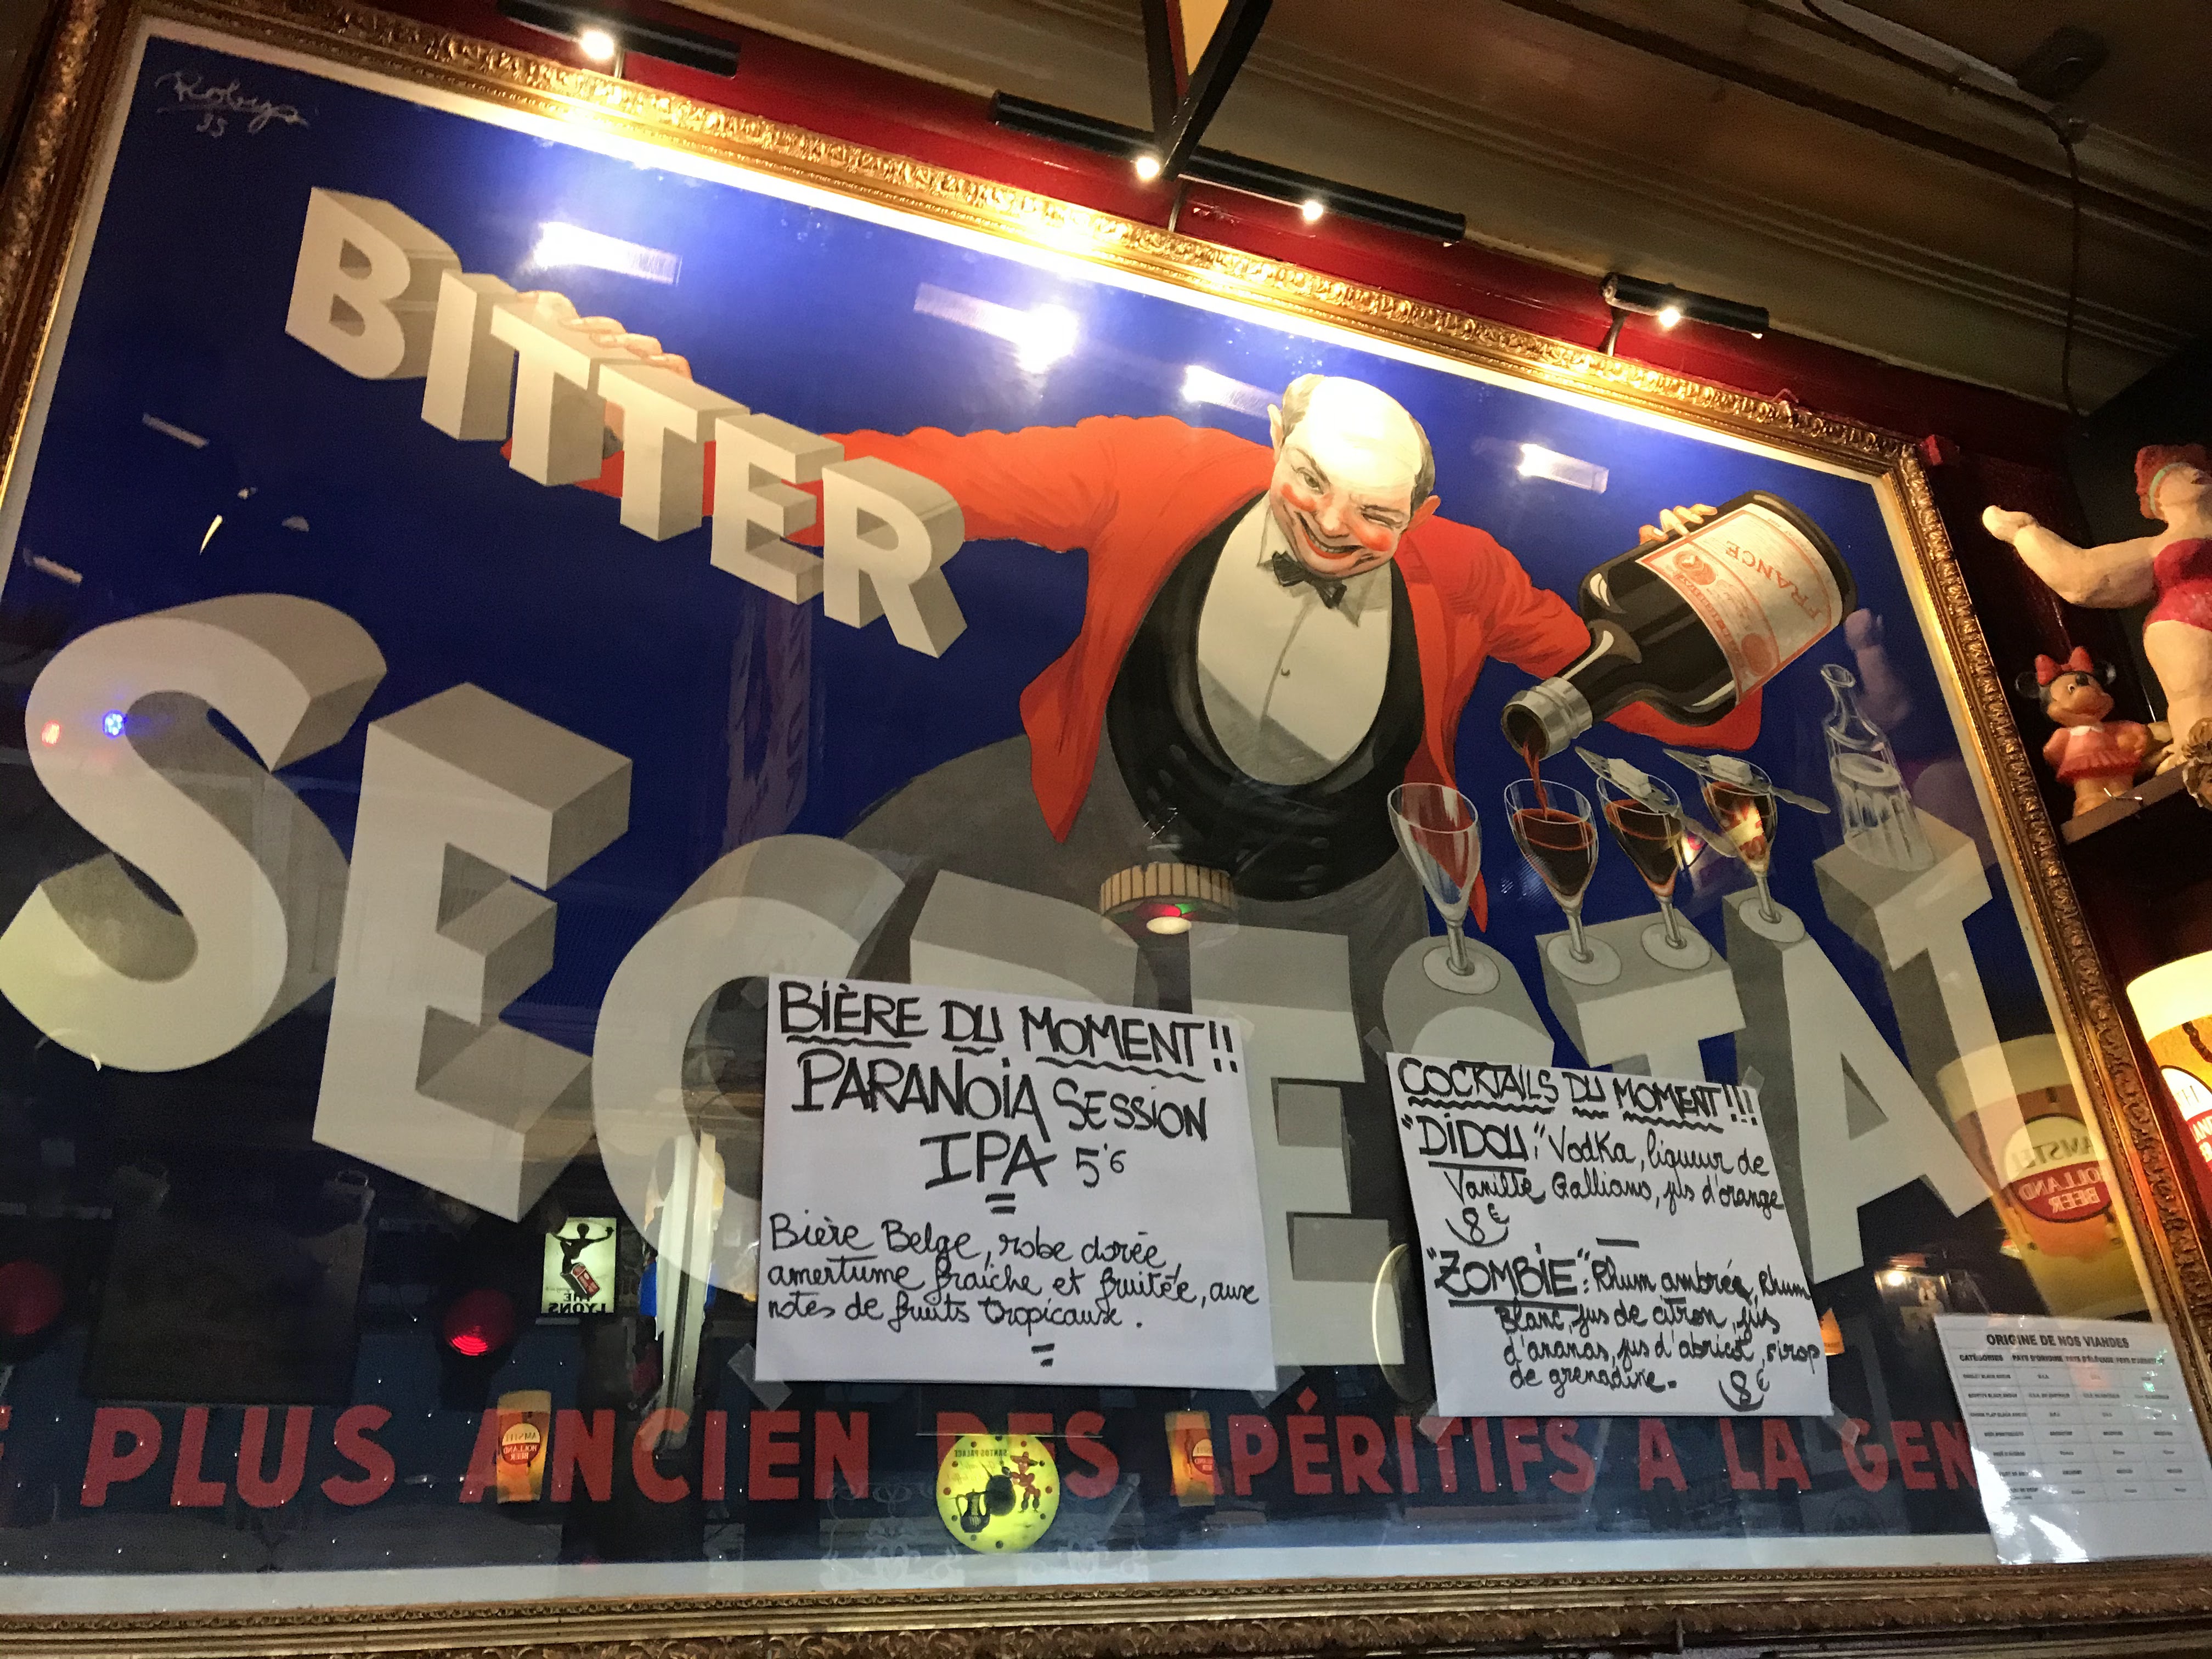 Robys
35
BITTER
SECRESTAT
FRANCE
BIÈRE DU MOMENT!!
PARANOÏA SESSION
IPA 5°6
Bière Belge, robe dorée,
amertume fraîche et fruitée, aux
notes de fruits tropicaux.
COCKTAILS DU MOMENT!!!
"DIDOU": Vodka, liqueur de
Vanille Galliano, jus d'orange
8€
"ZOMBIE": Rhum ambrée, Rhum
Blanc, jus de citron, jus
d'ananas, jus d'abricot, sirop
de grenadine.
8€
E PLUS ANCIEN DES APÉRITIFS A LA GEN
ORIGINE DE NOS VIANDES
AMSTEL
HOLLAND
BEER
THE
LYONS